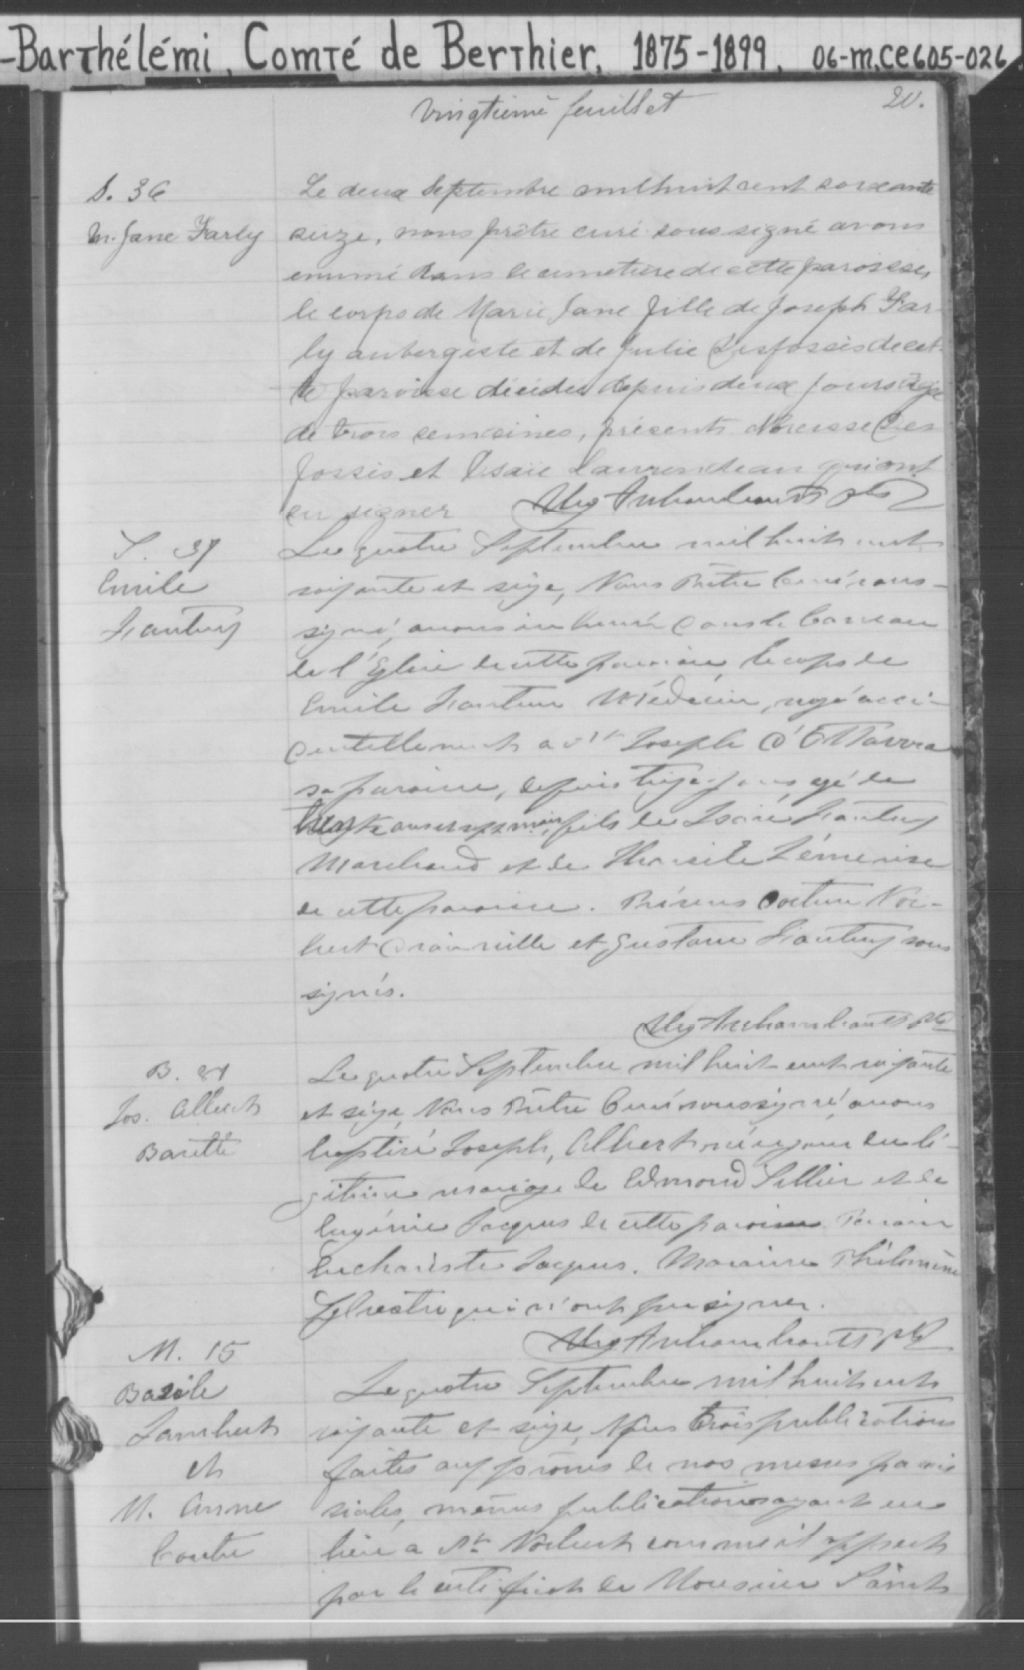 -Barthélémi, Comté de Berthier, 1875-1899, 06-M,CE605-026
vingtième feuillet 20.
S. 36
M. Jane Farly
Le deux Septembre mil huit cent soixante
seize, nous prêtre curé soussigné avons
inhumé dans le cimetière de cette paroisse,
le corps de Marie Jane fille de Joseph Far
ly aubergiste et de Julie Desfossés de cet
te paroisse décédée depuis deux jours âgée
de trois semaines, présents Narcisse Des
fossés et Isaïe Laurendeau qui ont
su signer Archambault ptre
S. 37
Emile
Le quatre Septembre mil huit cent
soixante et seize, Nous Prêtre Curé sous-
signé, avons inhumé dans le Caveau
de l'Eglise de cette paroisse le corps de
Emile Médecin, noyé acci-
dentellement a St Joseph d'Ottawa
sa paroisse, depuis jours agé de
ans et mois, fils de
Marchand et de
de cette paroisse. Présens Docteur Nor-
bert et Gustave sous
signés.
Archambault ptre
B.
Jos. Albert
Barette
Le quatre Septembre mil huit cent soixante
et seize, Nous Prêtre Curé soussigné, avons
baptisé Joseph, Albert né ce jour du lé-
gitime mariage de Edmond et de
Eugénie Jacques de cette paroisse Parrain
Euchariste Jacques. Marraine Philomène
Sylvestre qui n'ont pu signer.
Archambault ptre
M. 15
Basile
Lambert
et
M. Anne
Le quatre Septembre mil huit cent
soixante et seize, trois publications
faites aux prônes de nos messes parois
siales, mêmes publications ayant eu
lieu a St Norbert comme il appert
par le certificat de Monsieur